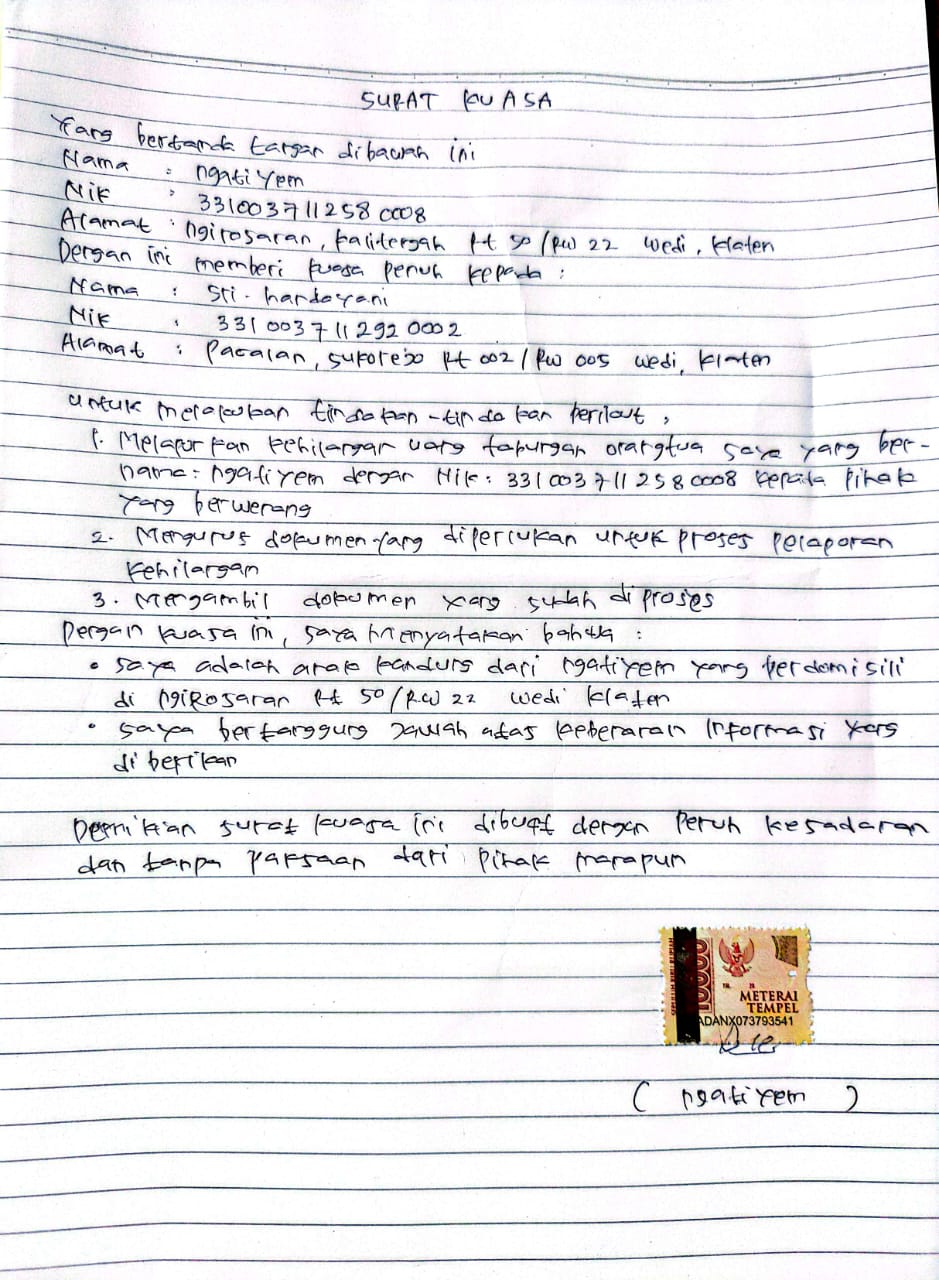 SURAT KUASA
Yang bertanda tangan dibawah ini
Nama : ngatiyem
Nik : 331003711258 0008
Alamat : ngirosaran, kalitengah Rt 50 / RW 22 wedi, klaten
Dengan ini memberi kuasa penuh kepada :
Nama : sti. handayani
Nik : 331003711292 0002
Alamat : Pacalan, sukorejo Rt 002 / RW 005 wedi, klaten
untuk melakukan tindakan-tindakan berikut,
1. Melaporkan kehilangan uang tabungan orangtua saya yang ber-
nama: ngatiyem dengan Nik: 331003711258 0008 kepada pihak
yang berwenang
2. Mengurus dokumen yang diperlukan untuk proses pelaporan
kehilangan
3. Mengambil dokumen yang sudah di proses
Dengan kuasa ini, saya menyatakan bahwa :
• saya adalah anak kandung dari ngatiyem yang berdomisili
di ngirosaran Rt 50 / RW 22 wedi klaten
• saya bertanggung jawab atas kebenaran informasi yang
di berikan
Demikian surat kuasa ini dibuat dengan penuh kesadaran
dan tanpa paksaan dari pihak manapun
10000
METERAI
TEMPEL
ADANX073793541
( ngatiyem )